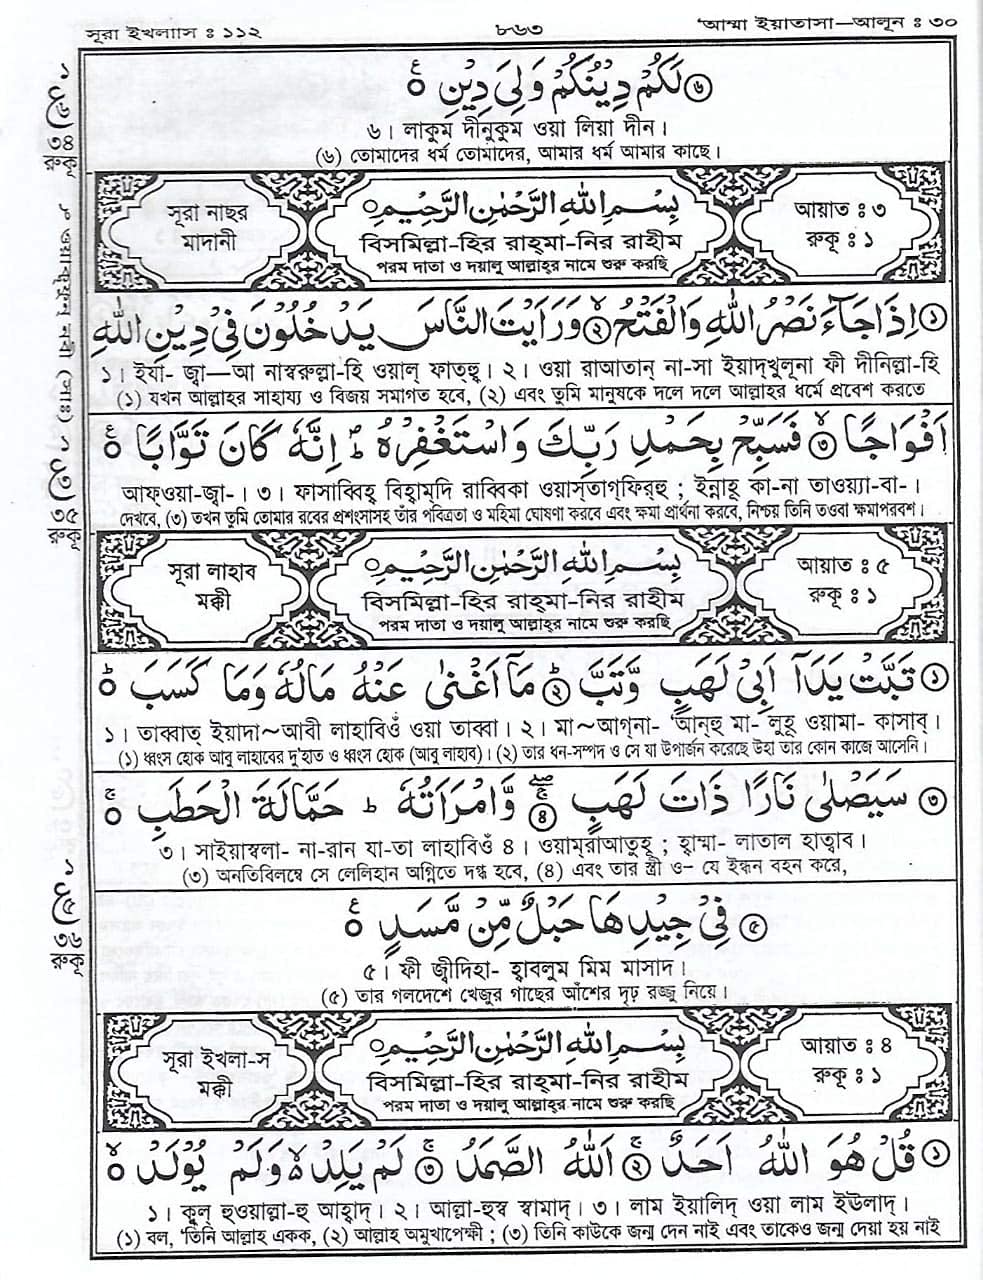 সূরা ইখলাাস : ১১২ ৮৬৩ 'আম্মা ইয়াতাসা—আলূন : ৩০
۝৬ لَكُمْ دِيْنُكُمْ وَلِيَ دِيْنِ ۝
৬। লাকুম দীনুকুম ওয়া লিয়া দীন।
(৬) তোমাদের ধর্ম তোমাদের, আমার ধর্ম আমার কাছে।
সূরা নাছর
মাদানী
بِسْمِ اللّٰهِ الرَّحْمٰنِ الرَّحِيْمِ
বিসমিল্লা-হির রাহ্‌মা-নির রাহীম
পরম দাতা ও দয়ালু আল্লাহ্‌র নামে শুরু করছি
আয়াত : ৩
রুকূ : ১
۝১ اِذَا جَآءَ نَصْرُ اللّٰهِ وَالْفَتْحُ ۝২ وَرَاَيْتَ النَّاسَ يَدْخُلُوْنَ فِيْ دِيْنِ اللّٰهِ
১। ইযা- জ্বা—আ নাস্বরুল্লা-হি ওয়াল্ ফাত্‌হু। ২। ওয়া রাআতান্ না-সা ইয়াদ্‌খুলূনা ফী দীনিল্লা-হি
(১) যখন আল্লাহর সাহায্য ও বিজয় সমাগত হবে, (২) এবং তুমি মানুষকে দলে দলে আল্লাহর ধর্মে প্রবেশ করতে
اَفْوَاجًا ۝৩ فَسَبِّحْ بِحَمْدِ رَبِّكَ وَاسْتَغْفِرْهُ ؕ اِنَّهٗ كَانَ تَوَّابًا ۝
আফ্ওয়া-জ্বা-। ৩। ফাসাব্বিহ্ বিহাম্‌দি রাব্বিকা ওয়াস্‌তাগ্‌ফির্‌হু ; ইন্নাহূ কা-না তাওয়্যা-বা-।
দেখবে, (৩) তখন তুমি তোমার রবের প্রশংসাসহ তাঁর পবিত্রতা ও মহিমা ঘোষণা করবে এবং ক্ষমা প্রার্থনা করবে, নিশ্চয় তিনি তওবা ক্ষমাপরবশ।
সূরা লাহাব
মক্কী
بِسْمِ اللّٰهِ الرَّحْمٰنِ الرَّحِيْمِ
বিসমিল্লা-হির রাহ্‌মা-নির রাহীম
পরম দাতা ও দয়ালু আল্লাহ্‌র নামে শুরু করছি
আয়াত : ৫
রুকূ : ১
۝১ تَبَّتْ يَدَآ اَبِيْ لَهَبٍ وَّتَبَّ ۝২ مَآ اَغْنٰى عَنْهُ مَالُهٗ وَمَا كَسَبَ ۝
১। তাব্বাত্ ইয়াদা~আবী লাহাবিওঁ ওয়া তাব্বা। ২। মা~আগ্‌না- 'আন্‌হু মা- লুহূ ওয়ামা- কাসাব্।
(১) ধ্বংস হোক আবু লাহাবের দু'হাত ও ধ্বংস হোক (আবু লাহাব)। (২) তার ধন-সম্পদ ও সে যা উপার্জন করেছে উহা তার কোন কাজে আসেনি।
۝৩ سَيَصْلٰى نَارًا ذَاتَ لَهَبٍ ۝৪ وَّامْرَاَتُهٗ ؕ حَمَّالَةَ الْحَطَبِ ۝
৩। সাইয়াস্বলা- না-রান যা-তা লাহাবিওঁ ৪। ওয়াম্‌রাআতুহূ ; হাম্মা- লাতাল হাত্বাব।
(৩) অনতিবিলম্বে সে লেলিহান অগ্নিতে দগ্ধ হবে, (৪) এবং তার স্ত্রী ও– যে ইন্ধন বহন করে,
۝৫ فِيْ جِيْدِهَا حَبْلٌ مِّنْ مَّسَدٍ ۝
৫। ফী জ্বীদিহা- হাবলুম মিম মাসাদ।
(৫) তার গলদেশে খেজুর গাছের আঁশের দৃঢ় রজ্জু নিয়ে।
সূরা ইখলা-স
মক্কী
بِسْمِ اللّٰهِ الرَّحْمٰنِ الرَّحِيْمِ
বিসমিল্লা-হির রাহ্‌মা-নির রাহীম
পরম দাতা ও দয়ালু আল্লাহ্‌র নামে শুরু করছি
আয়াত : ৪
রুকূ : ১
۝১ قُلْ هُوَ اللّٰهُ اَحَدٌ ۝২ اَللّٰهُ الصَّمَدُ ۝৩ لَمْ يَلِدْ وَلَمْ يُوْلَدْ ۝
১। ক্বুল্ হুওয়াল্লা-হু আহাদ্। ২। আল্লা-হুস্ব স্বামাদ্। ৩। লাম ইয়ালিদ্ ওয়া লাম ইঊলাদ্।
(১) বল, 'তিনি আল্লাহ একক, (২) আল্লাহ অমুখাপেক্ষী ; (৩) তিনি কাউকে জন্ম দেন নাই এবং তাকেও জন্ম দেয়া হয় নাই